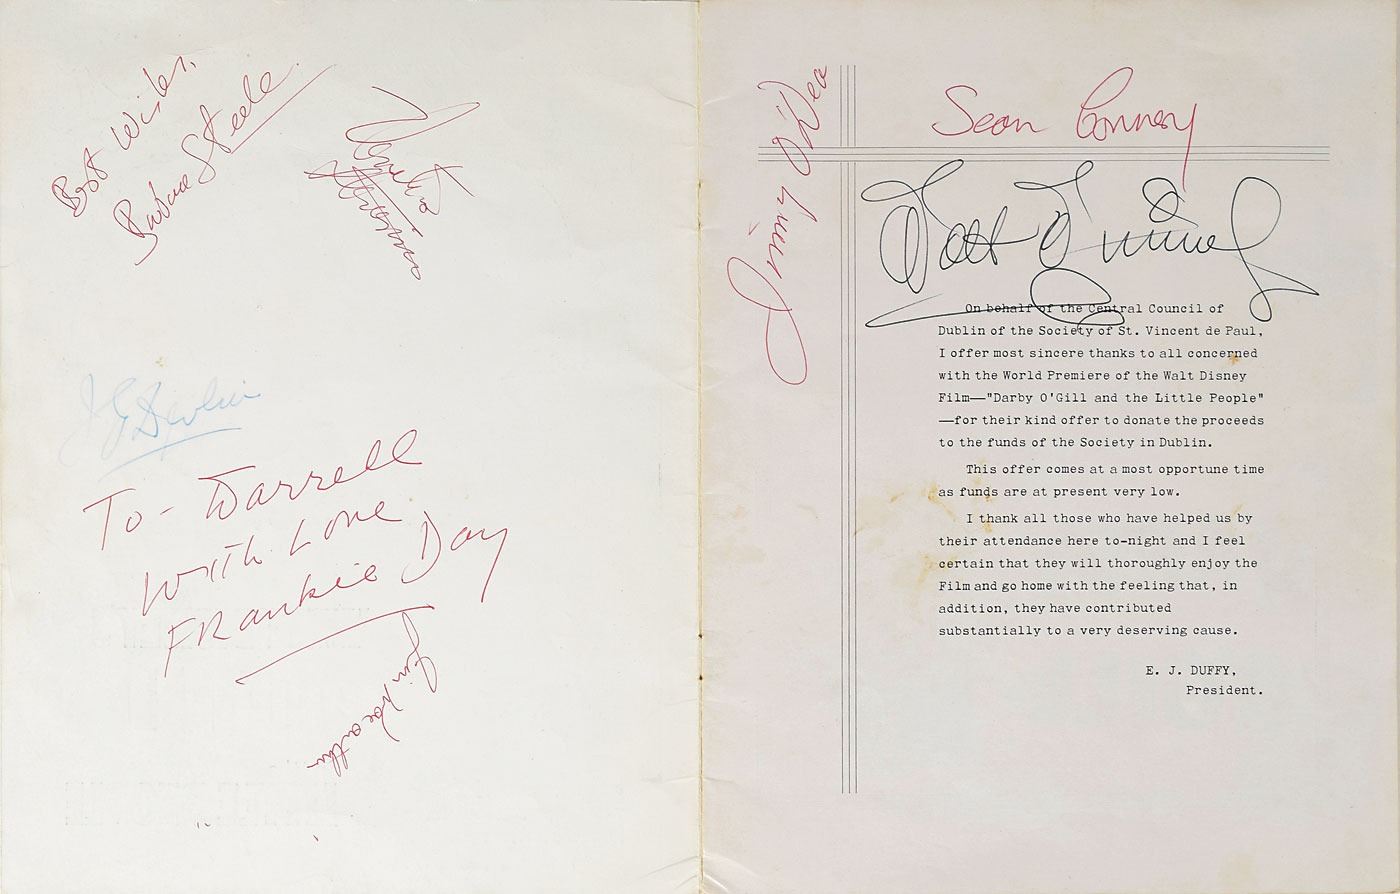 Best Wishes,
Barbara Steele
J G Devlin
To - Darrell
With Love
Frankie Day
Jimmy O'Dea
Sean Connery
Walt Disney
On behalf of the Central Council of
Dublin of the Society of St. Vincent de Paul,
I offer most sincere thanks to all concerned
with the World Premiere of the Walt Disney
Film—"Darby O'Gill and the Little People"
—for their kind offer to donate the proceeds
to the funds of the Society in Dublin.
This offer comes at a most opportune time
as funds are at present very low.
I thank all those who have helped us by
their attendance here to-night and I feel
certain that they will thoroughly enjoy the
Film and go home with the feeling that, in
addition, they have contributed
substantially to a very deserving cause.
E. J. DUFFY,
President.